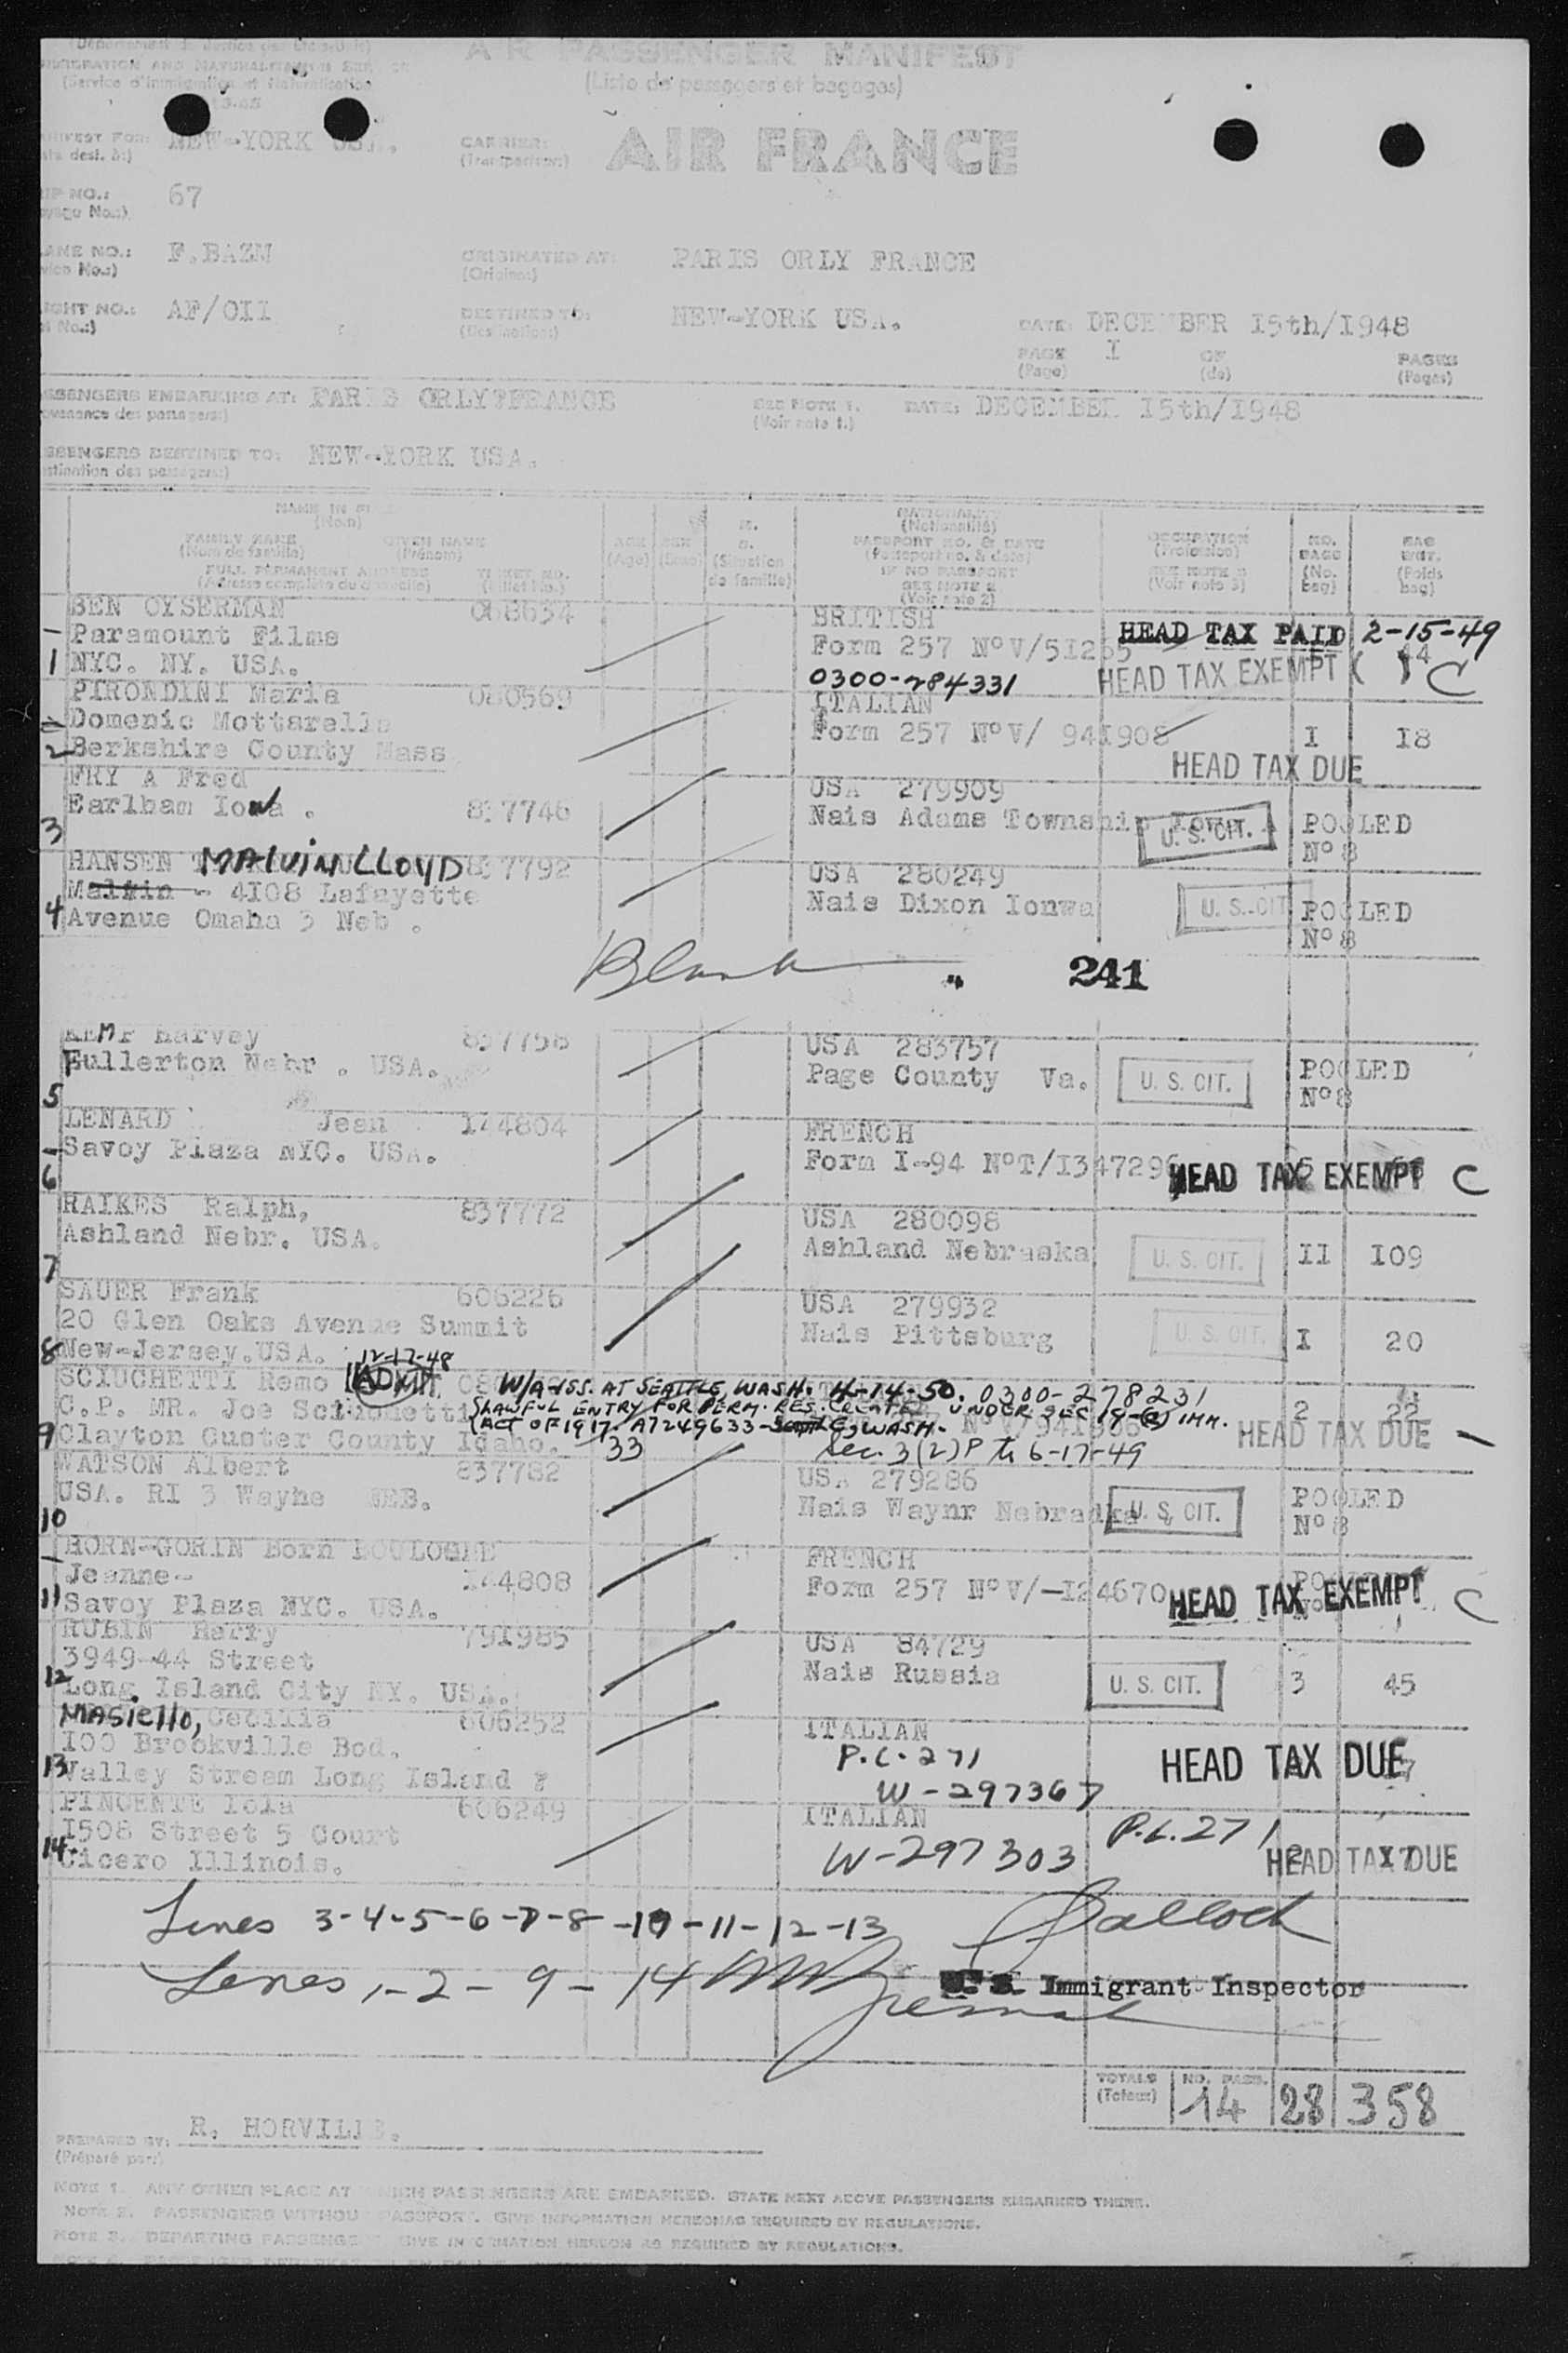 (Département de Justice des Etats-Unis)
AIR PASSENGER MANIFEST
IMMIGRATION AND NATURALIZATION
(Service d'Immigration et Naturalisation
(Liste de passagers et bagages)
NEW-YORK USA.
CARRIER:
(Transporteur:)
AIR FRANCE
NO.: 67
F.BAZN
ORIGINATED AT: PARIS ORLY FRANCE
(Origine:)
NO.: AF/OII
DESTINED TO: NEW-YORK USA.
(Destination:)
DATE: DECEMBER 15th/1948
PAGE I OF PAGES
(Page) (de) (Pages)
EMBARKING AT: PARIS ORLY FRANCE
SEE NOTE 1. DATE: DECEMBER 15th/1948
(Voir note 1.)
DESTINED TO: NEW-YORK USA.
NAME IN
(Nom)
FAMILY NAME GIVEN NAME
(Nom de famille) (Prénom)
FULL PERMANENT ADDRESS TICKET NO.
AGE SEX
(Age) (Sexe) (Situation de famille)
(Nationalité)
PASSPORT NO. & DATE
(Passeport no. & date)
IF NO PASSPORT
SEE NOTE 2
(Voir note 2)
OCCUPATION
(Profession)
SEE NOTE 3
(Voir note 3)
NO. BAGG
(No. bag)
BAG WGT.
(Poids bag)
BEN OYSERMAN 068634 BRITISH
Paramount Films Form 257 N°V/51255 HEAD TAX PAID 2-15-49
1 NYC. NY. USA. 0300-284331 HEAD TAX EXEMPT ( ) C 44
PIRONDINI Maria 080569 ITALIAN
Domenic Mottarella Form 257 N°V/ 941908 I 18
2 Berkshire County Mass HEAD TAX DUE
FRY A Fred USA 279909
Earlham Iowa . 837746 Nais Adams Township U. S. CIT. POOLED
3 N°8
HANSEN MALVIN LLOYD 837792 USA 280249
- 4108 Lafayette Nais Dixon Ionwa U. S. CIT POOLED
4 Avenue Omaha 3 Neb . N°8
Blank 241
KEMP Harvey 837758 USA 283757
Fullerton Nebr . USA. Page County Va. U. S. CIT. POOLED
5 N°8
LENARD Jean 144804 FRENCH
Savoy Plaza NYC. USA. Form I-94 N°T/I347296 HEAD TAX EXEMPT C
6
RAIKES Ralph, 837772 USA 280098
Ashland Nebr. USA. Ashland Nebraska U. S. CIT. II 109
7
SAUER Frank 606226 USA 279932
20 Glen Oaks Avenue Summit Nais Pittsburg U. S. CIT. I 20
8 New-Jersey.USA. 12-17-48
SCIUCHETTI Remo ADMIT. W/A ISS. AT SEATTLE, WASH. 4-14-50. 0300-278231
C.P. MR. Joe Sciuchetti LAWFUL ENTRY FOR PERM. RES. CREATED UNDER SEC 19-(c) IMM. 2 22
ACT OF 1917. A7249633-SEATTLE, WASH. HEAD TAX DUE
9 Clayton Custer County Idaho. 33 Sec. 3(2) 6-17-49
WATSON Albert 837782 USA 279286
USA. RI 3 Wayne NEB. Nais Waynr Nebradka U. S. CIT. POOLED
10 N°8
HORN-GORIN Born BOULOGNE FRENCH
Jeanne- 144808 Form 257 N°V/-I24670 HEAD TAX EXEMPT C
11 Savoy Plaza NYC. USA.
RUBIN Harry 791985 USA 84729
3949-44 Street Nais Russia U. S. CIT. 3 45
12 Long Island City NY. USA.
MASiello, Cecilia 606252 ITALIAN
100 Brookville Bod. P.L. 271 HEAD TAX DUE
13 Valley Stream Long Island W-297367
PINCENTE Iola 606249 ITALIAN
1508 Street 5 Court W-297303 P.L. 271
14. Cicero Illinois. HEAD TAX DUE
Lines 3-4-5-6-7-8-10-11-12-13
Lines 1-2-9-14
Immigrant Inspector
TOTALS NO. PASS.
(Totaux) 14 28 358
PREPARED BY: R. HORVILLE.
(Préparé par:)
NOTE 1. ANY OTHER PLACE AT WHICH PASSENGERS ARE EMBARKED. STATE NEXT ABOVE PASSENGERS EMBARKED THERE.
NOTE 2. PASSENGERS WITHOUT PASSPORT. GIVE INFORMATION HEREON AS REQUIRED BY REGULATIONS.
NOTE 3. DEPARTING PASSENGERS GIVE INFORMATION HEREON AS REQUIRED BY REGULATIONS.